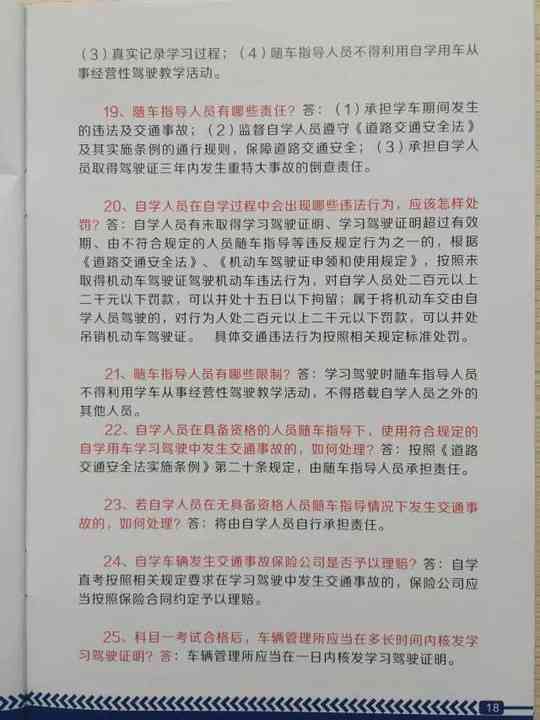 （3）真实记录学习过程；（4）随车指导人员不得利用自学用车从
事经营性驾驶教学活动。
19、随车指导人员有哪些责任？答：（1）承担学车期间发生
的违法及交通事故；（2）监督自学人员遵守《道路交通安全法》
及其实施条例的通行规则，保障道路交通安全；（3）承担自学人
员取得驾驶证三年内发生重特大事故的倒查责任。
20、自学人员在自学过程中会出现哪些违法行为，应该怎样处
罚？答：自学人员有未取得学习驾驶证明、学习驾驶证明超过有效
期、由不符合规定的人员随车指导等违反规定行为之一的，根据
《道路交通安全法》、《机动车驾驶证申领和使用规定》，按照未
取得机动车驾驶证驾驶机动车违法行为，对自学人员处二百元以上
二千元以下罚款，可以并处十五日以下拘留；属于将机动车交由自
学人员驾驶的，对行为人处二百元以上二千元以下罚款，可以并处
吊销机动车驾驶证。 具体交通违法行为按照相关规定标准处罚。
21、随车指导人员有哪些限制？答：学习驾驶时随车指导人员
不得利用学车从事经营性驾驶教学活动，不得搭载自学人员之外的
其他人员。
22、自学人员在具备资格的人员随车指导下，使用符合规定的
自学用车学习驾驶中发生交通事故的，如何处理？答：按照《道路
交通安全法实施条例》第二十条规定，由随车指导人员承担责任。
23、若自学人员在无具备资格人员随车指导情况下发生交通事
故的，如何处理？答：将由自学人员自行承担责任。
24、自学车辆发生交通事故保险公司是否予以理赔？答：自学
直考按照相关规定要求在学习驾驶中发生交通事故的，保险公司应
当按照保险合同约定予以理赔。
25、科目一考试合格后，车辆管理所应当在多长时间内核发学
习驾驶证明？答：车辆管理所应当在一日内核发学习驾驶证明。
18